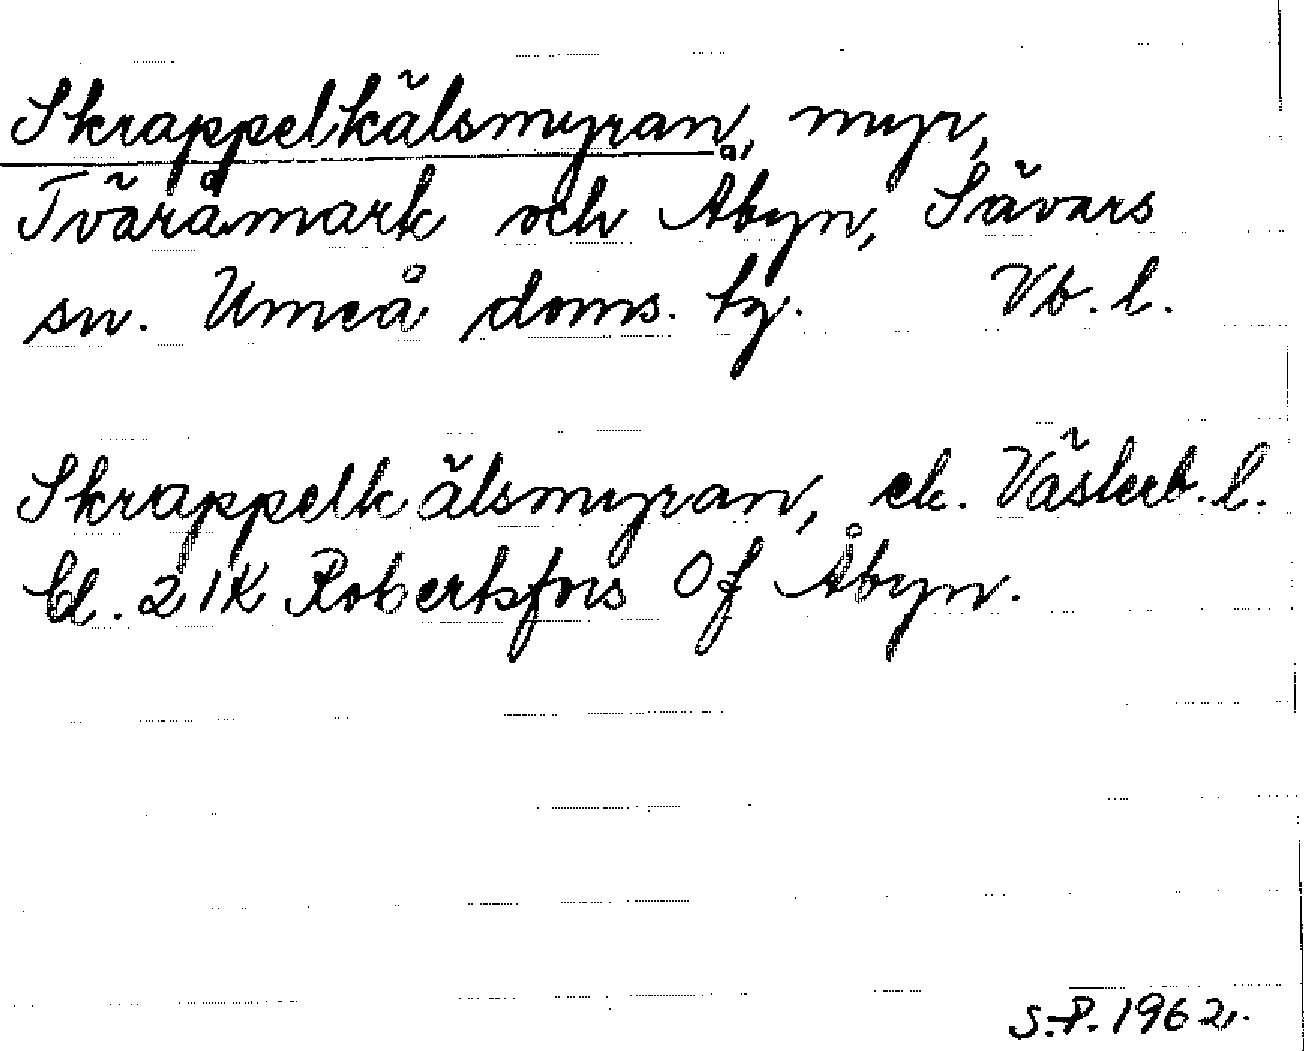 Skrappelkälsmyran, myr,
Tväråmark och Åbyn, Sävars
sn. Umeå doms. tg. Vb. l.
Skrappelkälsmyran, ek. Västerb. l.
bl. 21K Robertsfors Of Åbyn.
S.P. 1962.